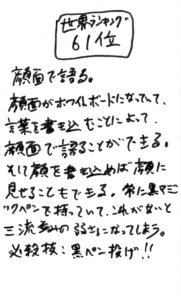 世界ランキング
61位
顔面で語る。
顔面がホワイトボードになっていて、
言葉を書き込むことによって、
顔面で語ることができる。
そして顔を書き込めば顔に
見せることもできる。常に黒マジ
ックペンを持っていて、これがないと
三流並みの弱さになってしまう。
必殺技:黒ペン投げ!!